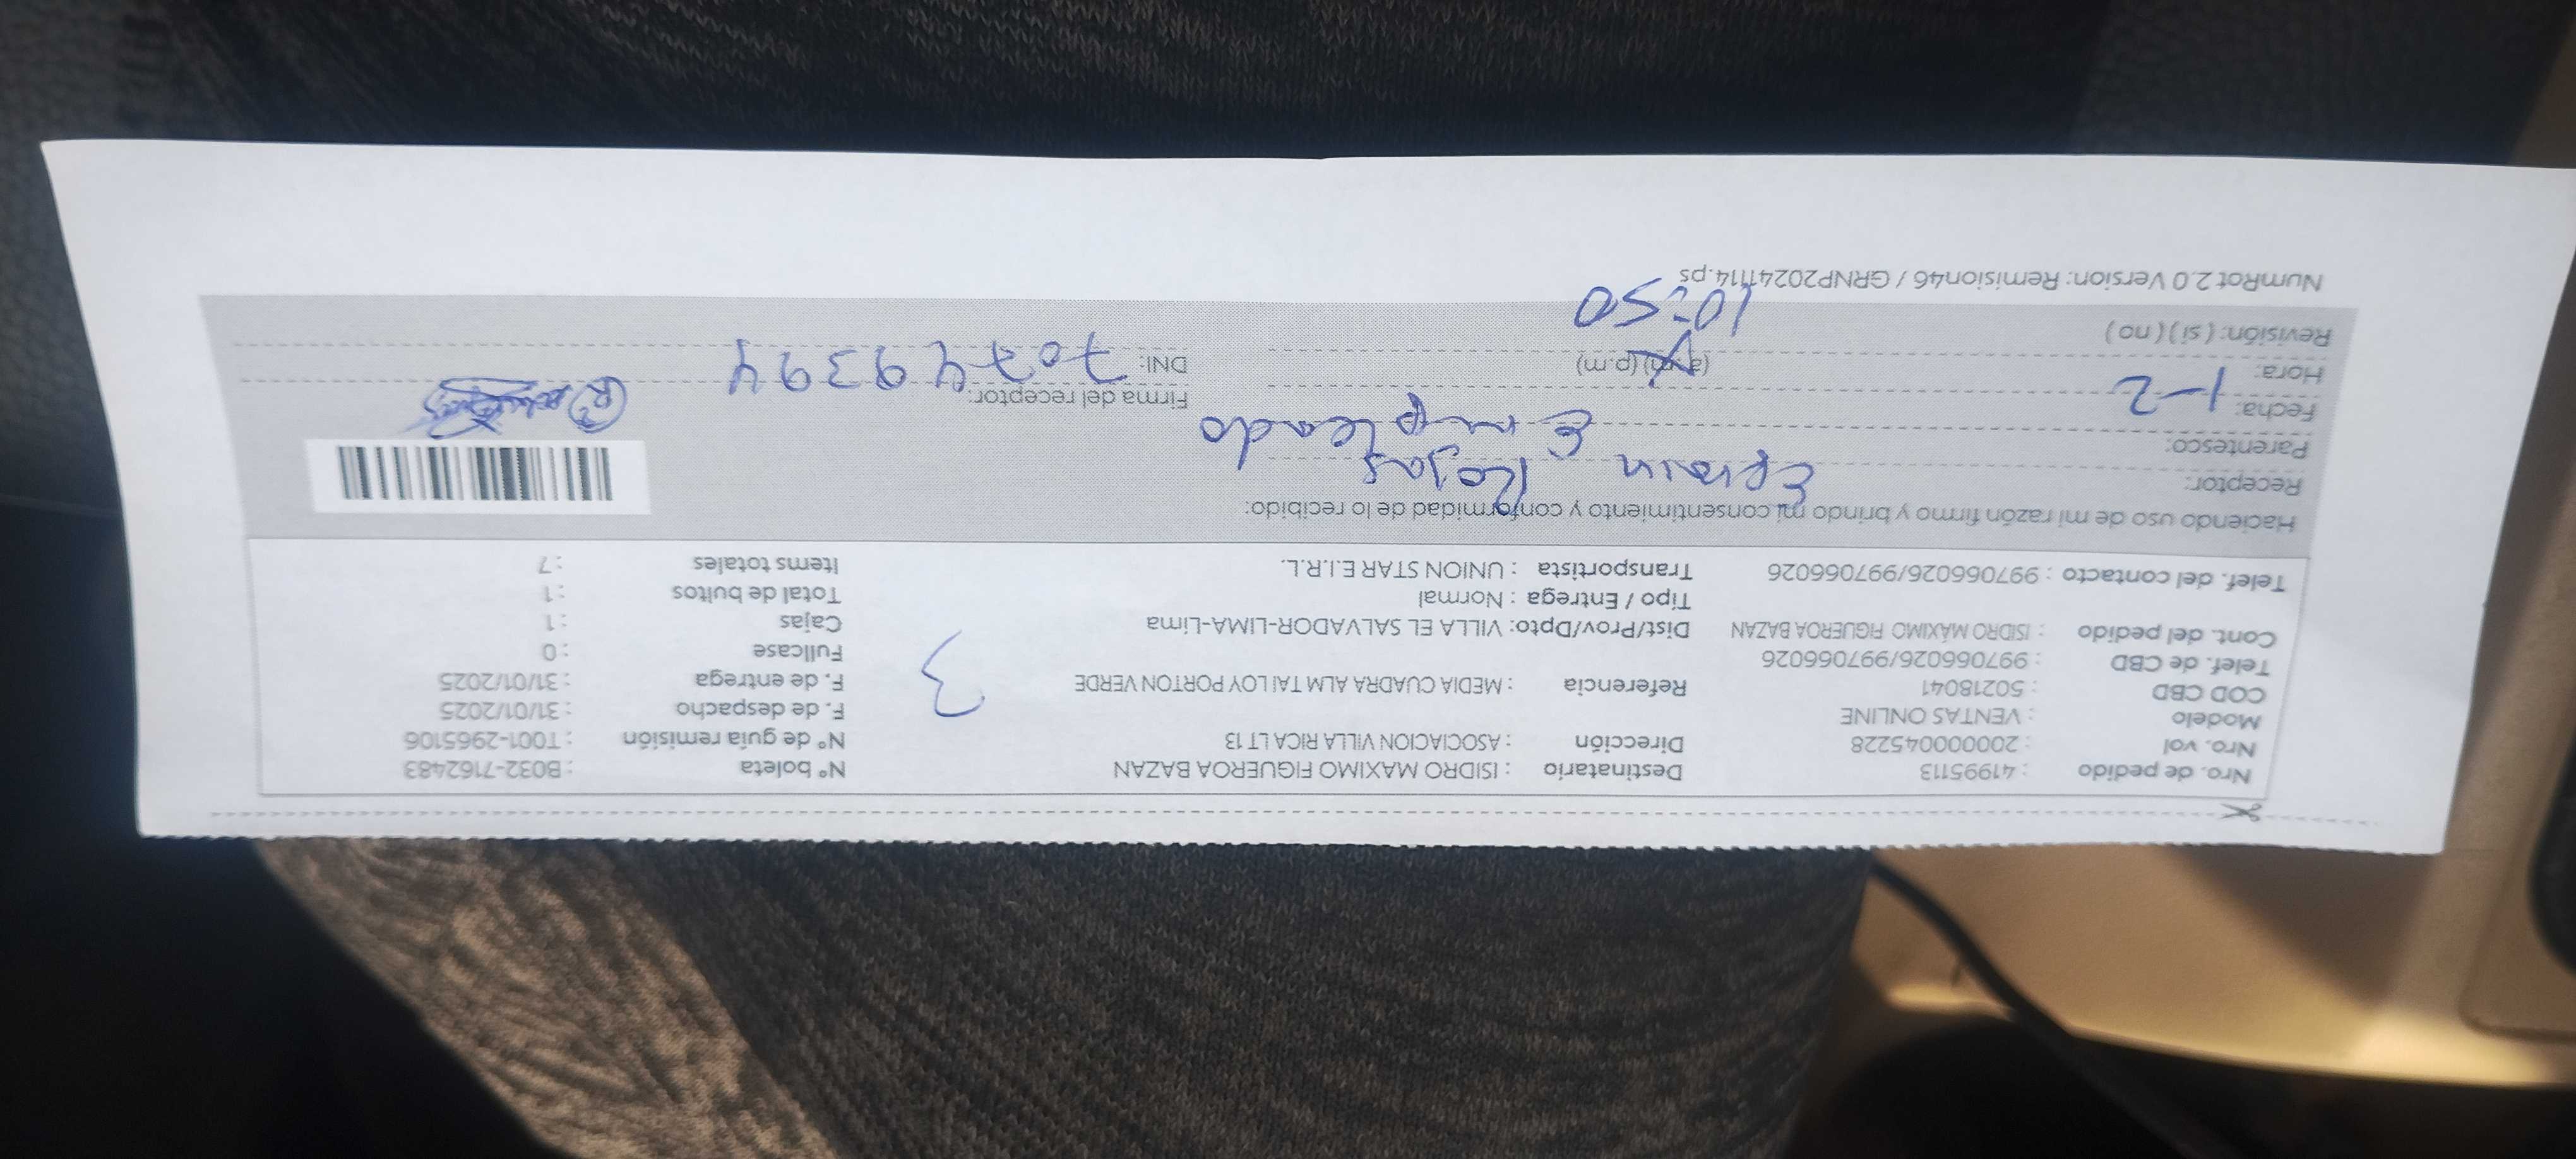 Nro. de pedido : 41995113 Destinatario : ISIDRO MAXIMO FIGUEROA BAZAN N° boleta : B032-7162483
Nro. vol : 20000004522­8 Dirección : ASOCIACION VILLA RICA LT 13 N° de guía remisión : T001-2965106
Modelo : VENTAS ONLINE F. de despacho : 31/01/2025
COD CBD : 50218041 Referencia : MEDIA CUADRA ALM TAI LOY PORTON VERDE F. de entrega : 31/01/2025
Telef. de CBD : 997066026/997066026 3 Fullcase : 0
Cont. del pedido : ISIDRO MAXIMO FIGUEROA BAZAN Dist/Prov/Dpto: VILLA EL SALVADOR-LIMA-Lima Cajas : 1
Tipo / Entrega : Normal Total de bultos : 1
Telef. del contacto : 997066026/997066026 Transportista : UNION STAR E.I.R.L. Items totales : 7
Haciendo uso de mi razón firmo y brindo mi consentimiento y conformidad de lo recibido:
Receptor: Efrain Rojas
Parentesco: Empleado
Fecha: 1-2 Firma del receptor:
Hora: (a.m) (p.m) DNI: 70749394
Revisión: ( si ) ( no ) 10:50
NumRot 2.0 Version: Remision46 / GRNP20241114.ps